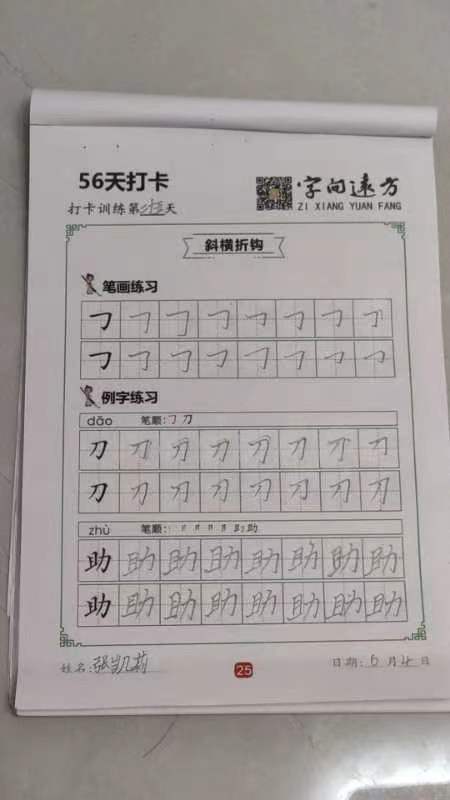 56天打卡
打卡训练第 天
字向遠方
ZI XIANG YUAN FANG
斜横折钩
笔画练习
㇆ ㇆ ㇆ ㇆ ㇆ ㇆ ㇆ ㇆
㇆ ㇆ ㇆ ㇆ ㇆ ㇆ ㇆ ㇆
例字练习
dāo 笔顺: ㇆ 刀
刀 刀 刀 刀 刀 刀 刀 刀
刀 刀 刀 刀 刀 刀 刀 刀
zhù 笔顺: 助
助 助 助 助 助 助 助 助
助 助 助 助 助 助 助 助
姓名: 张凯莉
25
日期: 6 月 4 日